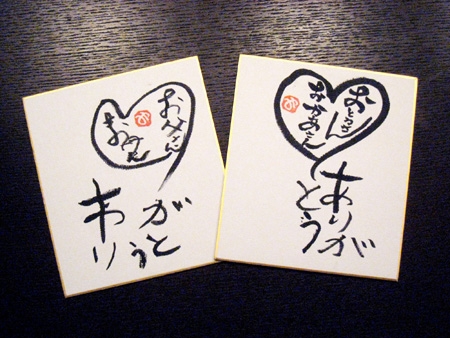 お父さん
お母さん
あり
がとう
おとうさん
おかあさん
ありが
とう